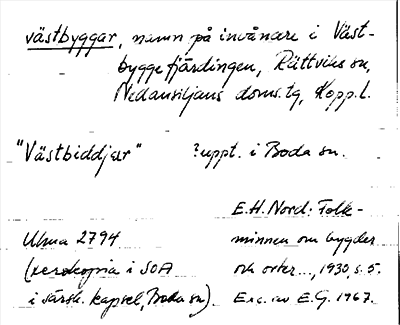 västbyggar, namn på invånare i Väst-
byggefjärdingen, Rättviks sn,
Nedansiljans doms.tg, Kopp.l.
"Västbiddjar" ?uppt. i Boda sn.
E.H. Nord: Folk-
minnen om bygder
och orter..., 1930, s. 5.
Exc. av E.G. 1967.
Ulma 2794
(xerokopia i SOA
i särsk. kapsel, Boda sn).